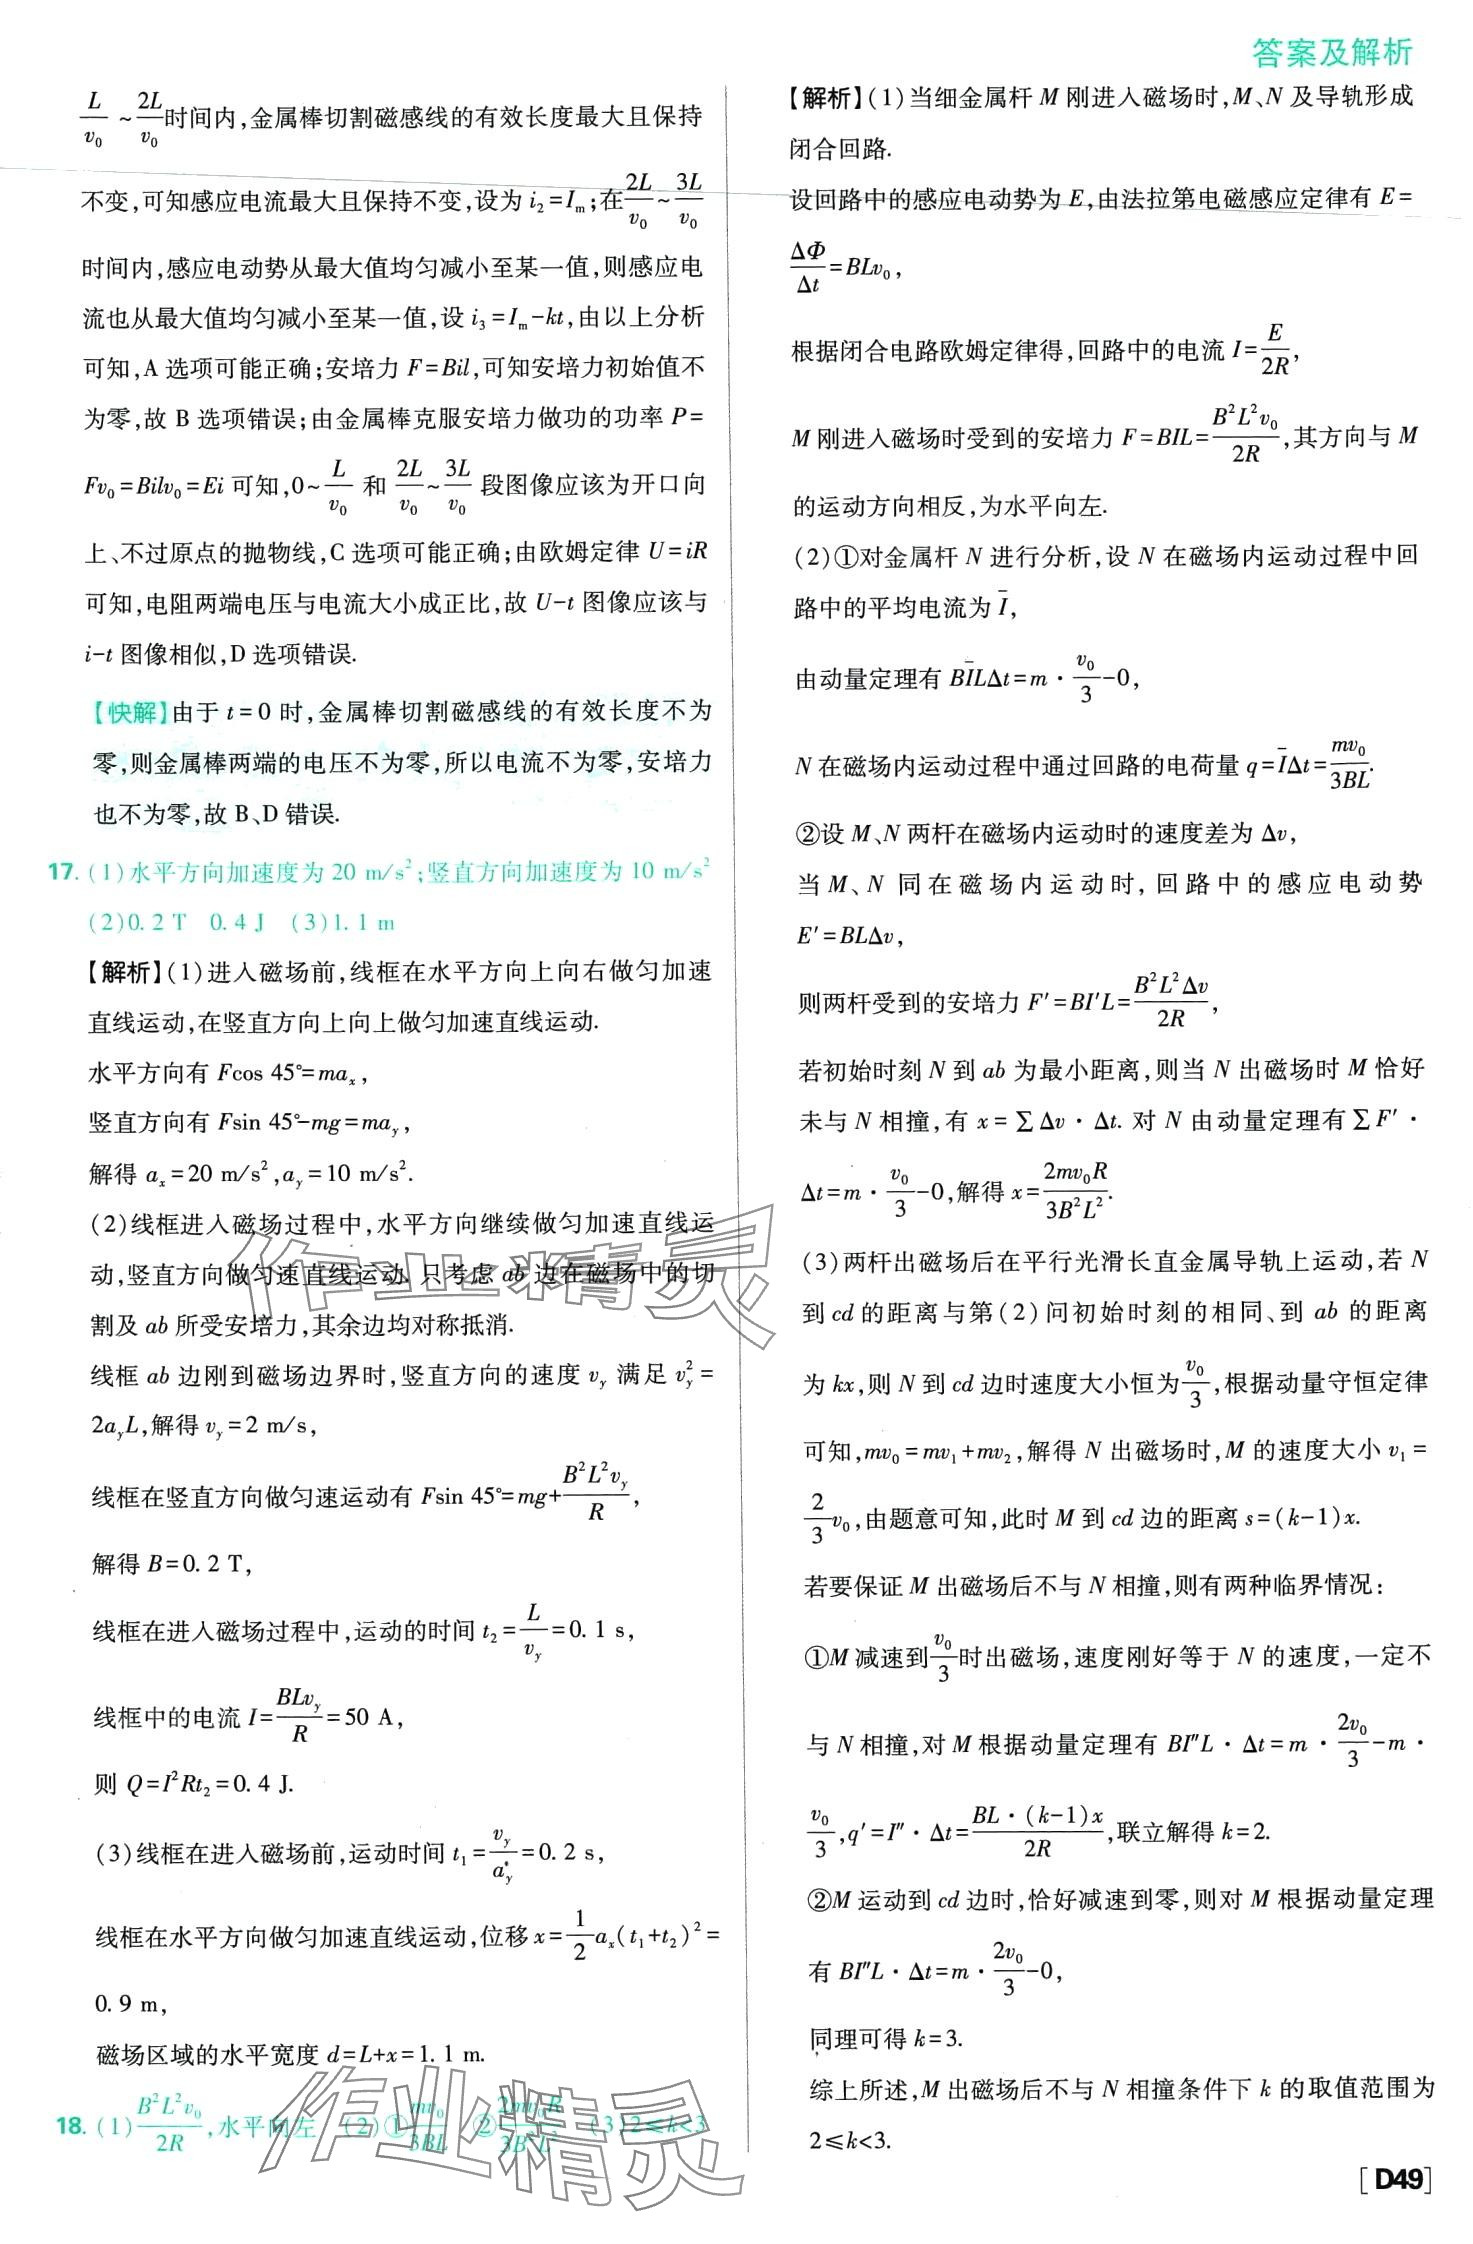 答案及解析
L/v₀ ~ 2L/v₀ 时间内,金属棒切割磁感线的有效长度最大且保持
不变,可知感应电流最大且保持不变,设为 i₂=Iₘ;在 2L/v₀ ~ 3L/v₀
时间内,感应电动势从最大值均匀减小至某一值,则感应电
流也从最大值均匀减小至某一值,设 i₃=Iₘ-kt,由以上分析
可知,A 选项可能正确;安培力 F=Bil,可知安培力初始值不
为零,故 B 选项错误;由金属棒克服安培力做功的功率 P=
Fv₀=Bilv₀=Ei 可知,0~L/v₀ 和 2L/v₀~3L/v₀ 段图像应该为开口向
上、不过原点的抛物线,C 选项可能正确;由欧姆定律 U=iR
可知,电阻两端电压与电流大小成正比,故 U-t 图像应该与
i-t 图像相似,D 选项错误.
【快解】由于 t=0 时,金属棒切割磁感线的有效长度不为
零,则金属棒两端的电压不为零,所以电流不为零,安培力
也不为零,故 B、D 错误.
17. (1)水平方向加速度为 20 m/s²;竖直方向加速度为 10 m/s²
(2)0.2 T 0.4 J (3)1.1 m
【解析】(1)进入磁场前,线框在水平方向上向右做匀加速
直线运动,在竖直方向上向上做匀加速直线运动.
水平方向有 Fcos 45°=maₓ,
竖直方向有 Fsin 45°-mg=ma_y,
解得 aₓ=20 m/s²,a_y=10 m/s².
(2)线框进入磁场过程中,水平方向继续做匀加速直线运
动,竖直方向做匀速直线运动.只考虑 ab 边在磁场中的切
割及 ab 所受安培力,其余边均对称抵消.
线框 ab 边刚到磁场边界时,竖直方向的速度 v_y 满足 v_y²=
2a_yL,解得 v_y=2 m/s,
线框在竖直方向做匀速运动有 Fsin 45°=mg+B²L²v_y/R,
解得 B=0.2 T,
线框在进入磁场过程中,运动的时间 t₂=L/v_y=0.1 s,
线框中的电流 I=BLv_y/R=50 A,
则 Q=I²Rt₂=0.4 J.
(3)线框在进入磁场前,运动时间 t₁=v_y/a_y=0.2 s,
线框在水平方向做匀加速直线运动,位移 x=1/2aₓ(t₁+t₂)²=
0.9 m,
磁场区域的水平宽度 d=L+x=1.1 m.
18. (1)B²L²v₀/2R,水平向左 (2)①mv₀/3BL ②2mv₀R/3B²L² (3)2≤k<3
【解析】(1)当细金属杆 M 刚进入磁场时,M、N 及导轨形成
闭合回路.
设回路中的感应电动势为 E,由法拉第电磁感应定律有 E=
ΔΦ/Δt=BLv₀,
根据闭合电路欧姆定律得,回路中的电流 I=E/2R,
M 刚进入磁场时受到的安培力 F=BIL=B²L²v₀/2R,其方向与 M
的运动方向相反,为水平向左.
(2)①对金属杆 N 进行分析,设 N 在磁场内运动过程中回
路中的平均电流为 Ī,
由动量定理有 BĪLΔt=m·v₀/3-0,
N 在磁场内运动过程中通过回路的电荷量 q=ĪΔt=mv₀/3BL.
②设 M、N 两杆在磁场内运动时的速度差为 Δv,
当 M、N 同在磁场内运动时,回路中的感应电动势
E′=BLΔv,
则两杆受到的安培力 F′=BI′L=B²L²Δv/2R,
若初始时刻 N 到 ab 为最小距离,则当 N 出磁场时 M 恰好
未与 N 相撞,有 x=∑Δv·Δt.对 N 由动量定理有∑F′·
Δt=m·v₀/3-0,解得 x=2mv₀R/3B²L².
(3)两杆出磁场后在平行光滑长直金属导轨上运动,若 N
到 cd 的距离与第(2)问初始时刻的相同、到 ab 的距离
为 kx,则 N 到 cd 边时速度大小恒为v₀/3,根据动量守恒定律
可知,mv₀=mv₁+mv₂,解得 N 出磁场时,M 的速度大小 v₁=
2/3v₀,由题意可知,此时 M 到 cd 边的距离 s=(k-1)x.
若要保证 M 出磁场后不与 N 相撞,则有两种临界情况:
①M 减速到v₀/3时出磁场,速度刚好等于 N 的速度,一定不
与 N 相撞,对 M 根据动量定理有 BI″L·Δt=m·2v₀/3-m·
v₀/3,q′=I″·Δt=BL·(k-1)x/2R,联立解得 k=2.
②M 运动到 cd 边时,恰好减速到零,则对 M 根据动量定理
有 BI″L·Δt=m·2v₀/3-0,
同理可得 k=3.
综上所述,M 出磁场后不与 N 相撞条件下 k 的取值范围为
2≤k<3.
[D49]
作业精灵
作业精灵